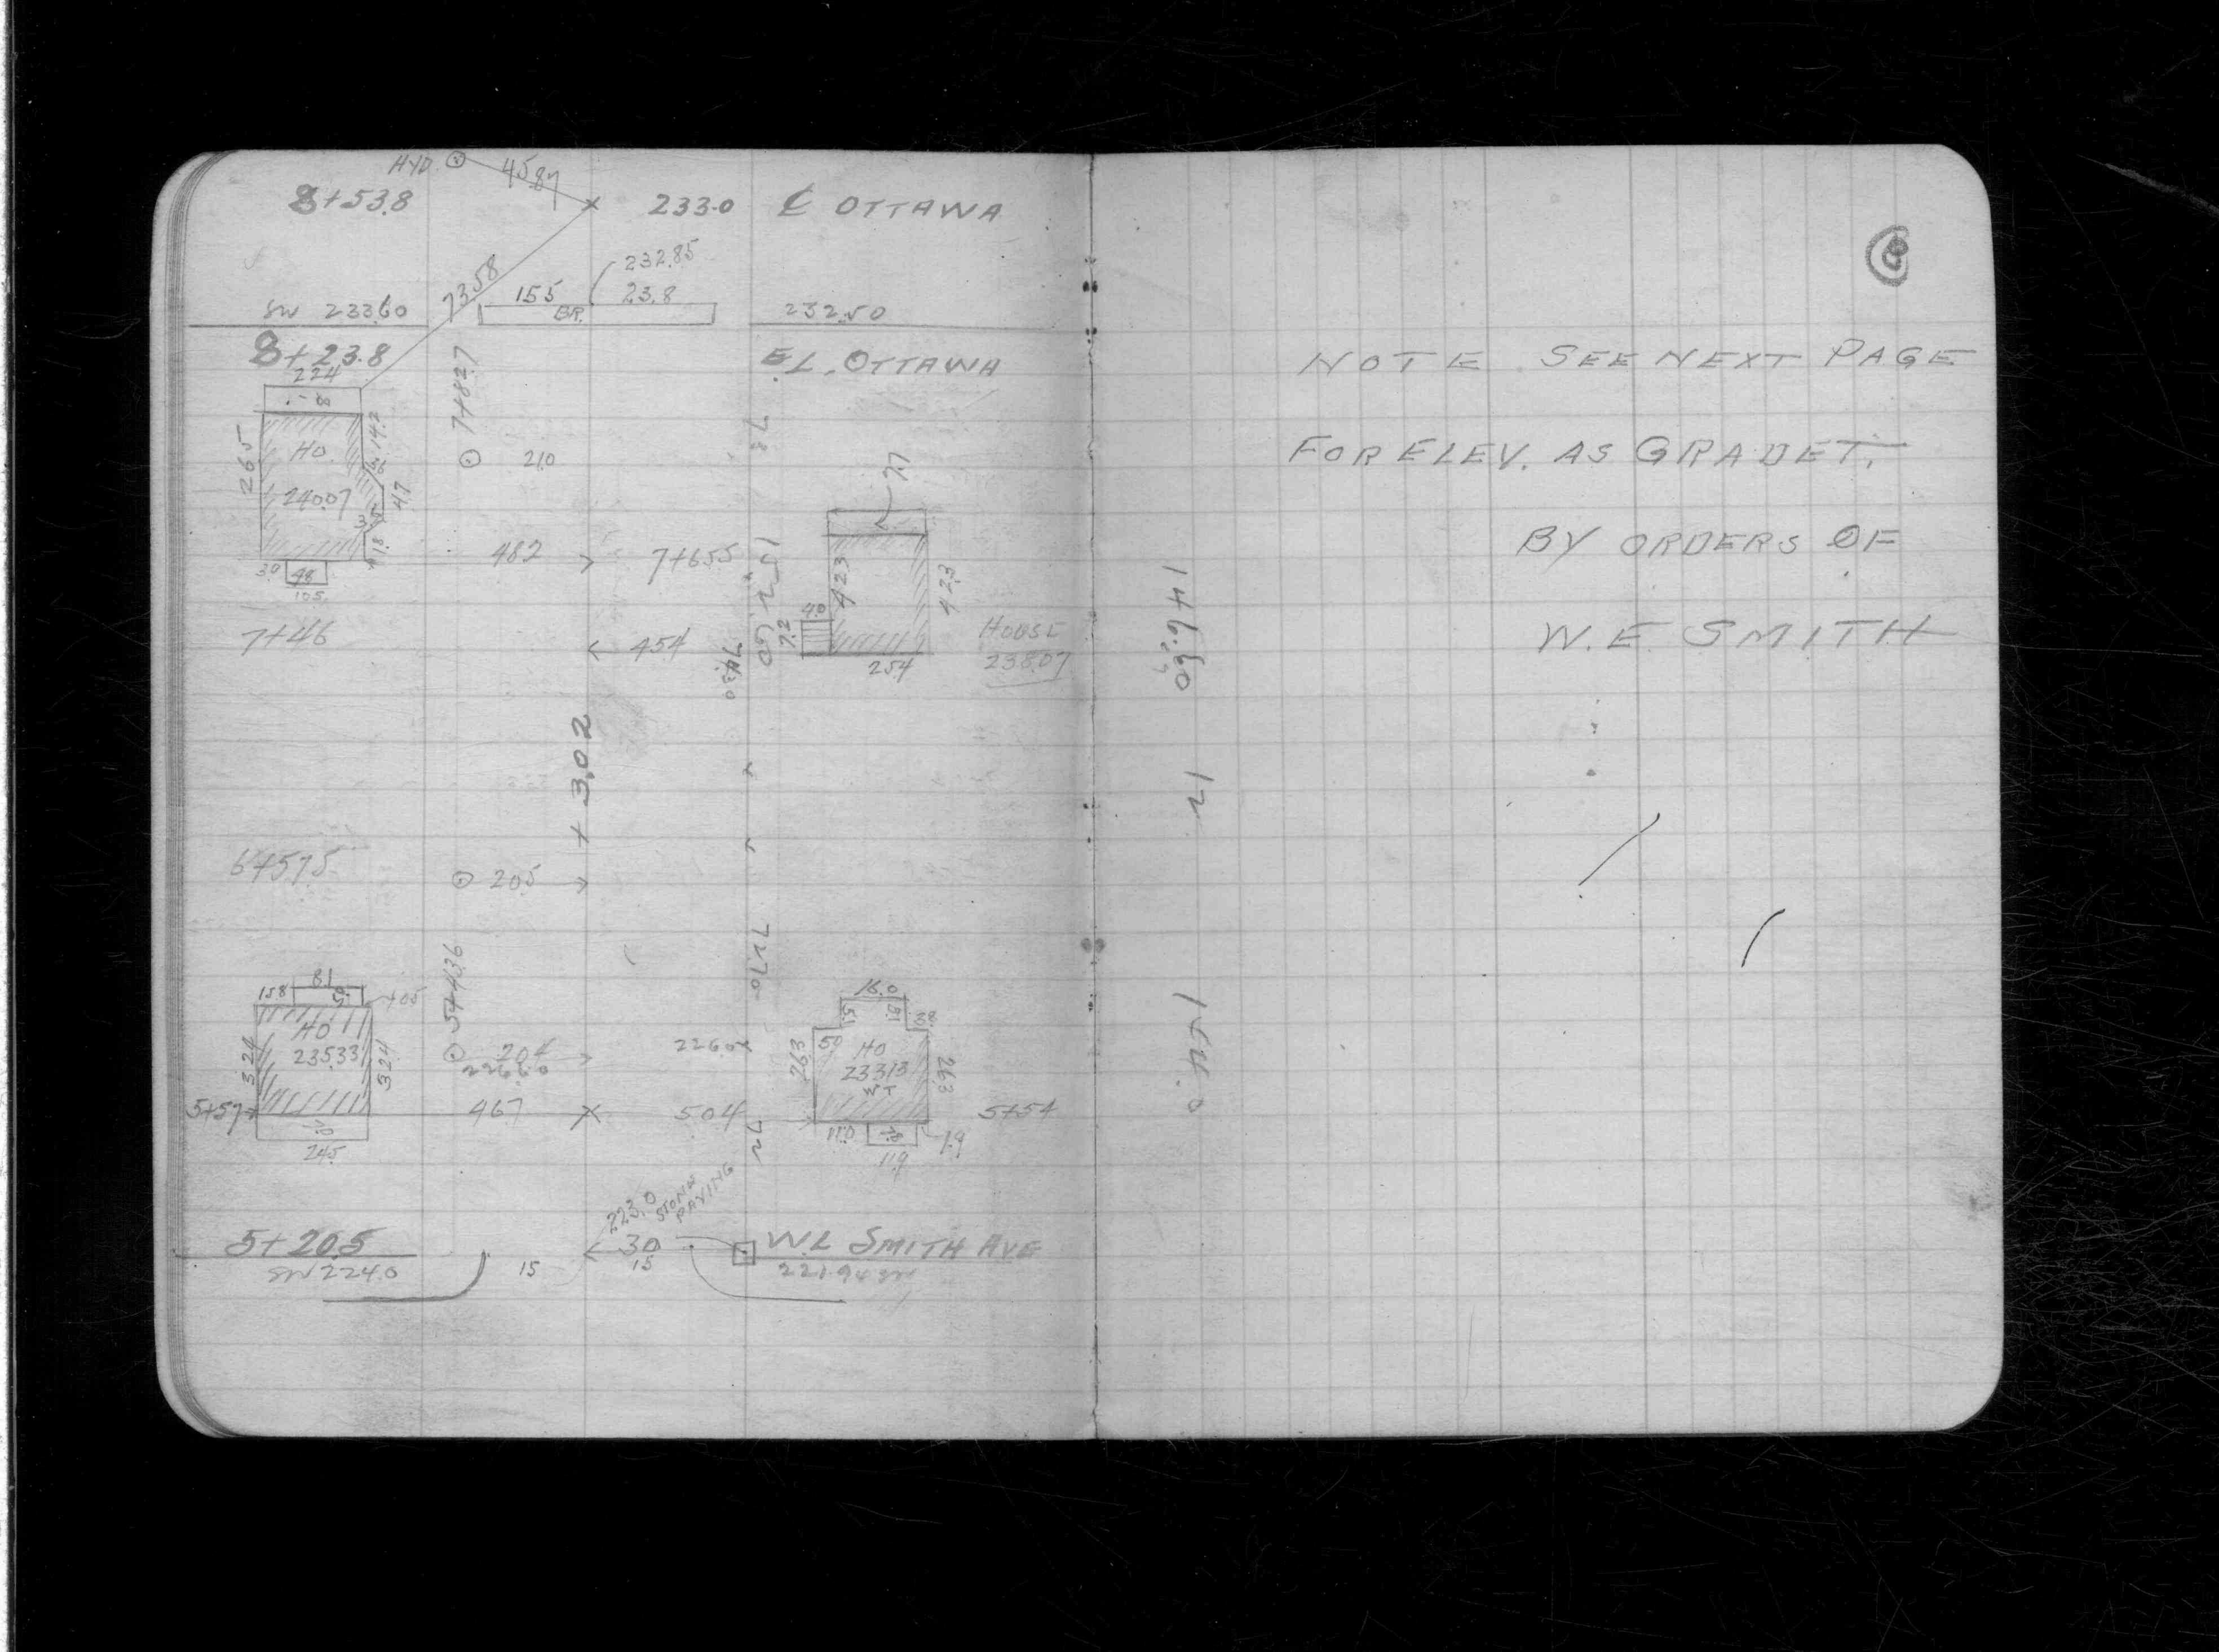 HYD. 45.87
8+53.8 233.0 ℄ OTTAWA
232.85
73.58 15.5 23.8
SW 233.60 BR. 232.50
8+23.8 E.L. OTTAWA
22.4
8
7+82.7
14.2
26.5 HO.
21.0
240.07 4.7
7.7
3.0 9.8
10.5
48.2 7+65.5
42.3 42.3
4.0
7.2
7+46 45.4 HOUSE
25.4 238.07
+3.02
6+57.5 20.5
5+43.6
8.1
15.8 +0.5
HO
235.33
32.4 32.4
20.4
226.60
16.0
8.1
26.3 HO 26.3
233.13
WT
5+57 46.7 50.4 5+54
24.5 11.0 1.9
11.9
223.0 STONE PAVING
5+20.5 30 W.L SMITH AVE
SW 224.0 15 15 221.94 SW
8
NOTE. SEE NEXT PAGE
FOR ELEV. AS GRADET.
BY ORDERS OF
W.E. SMITH